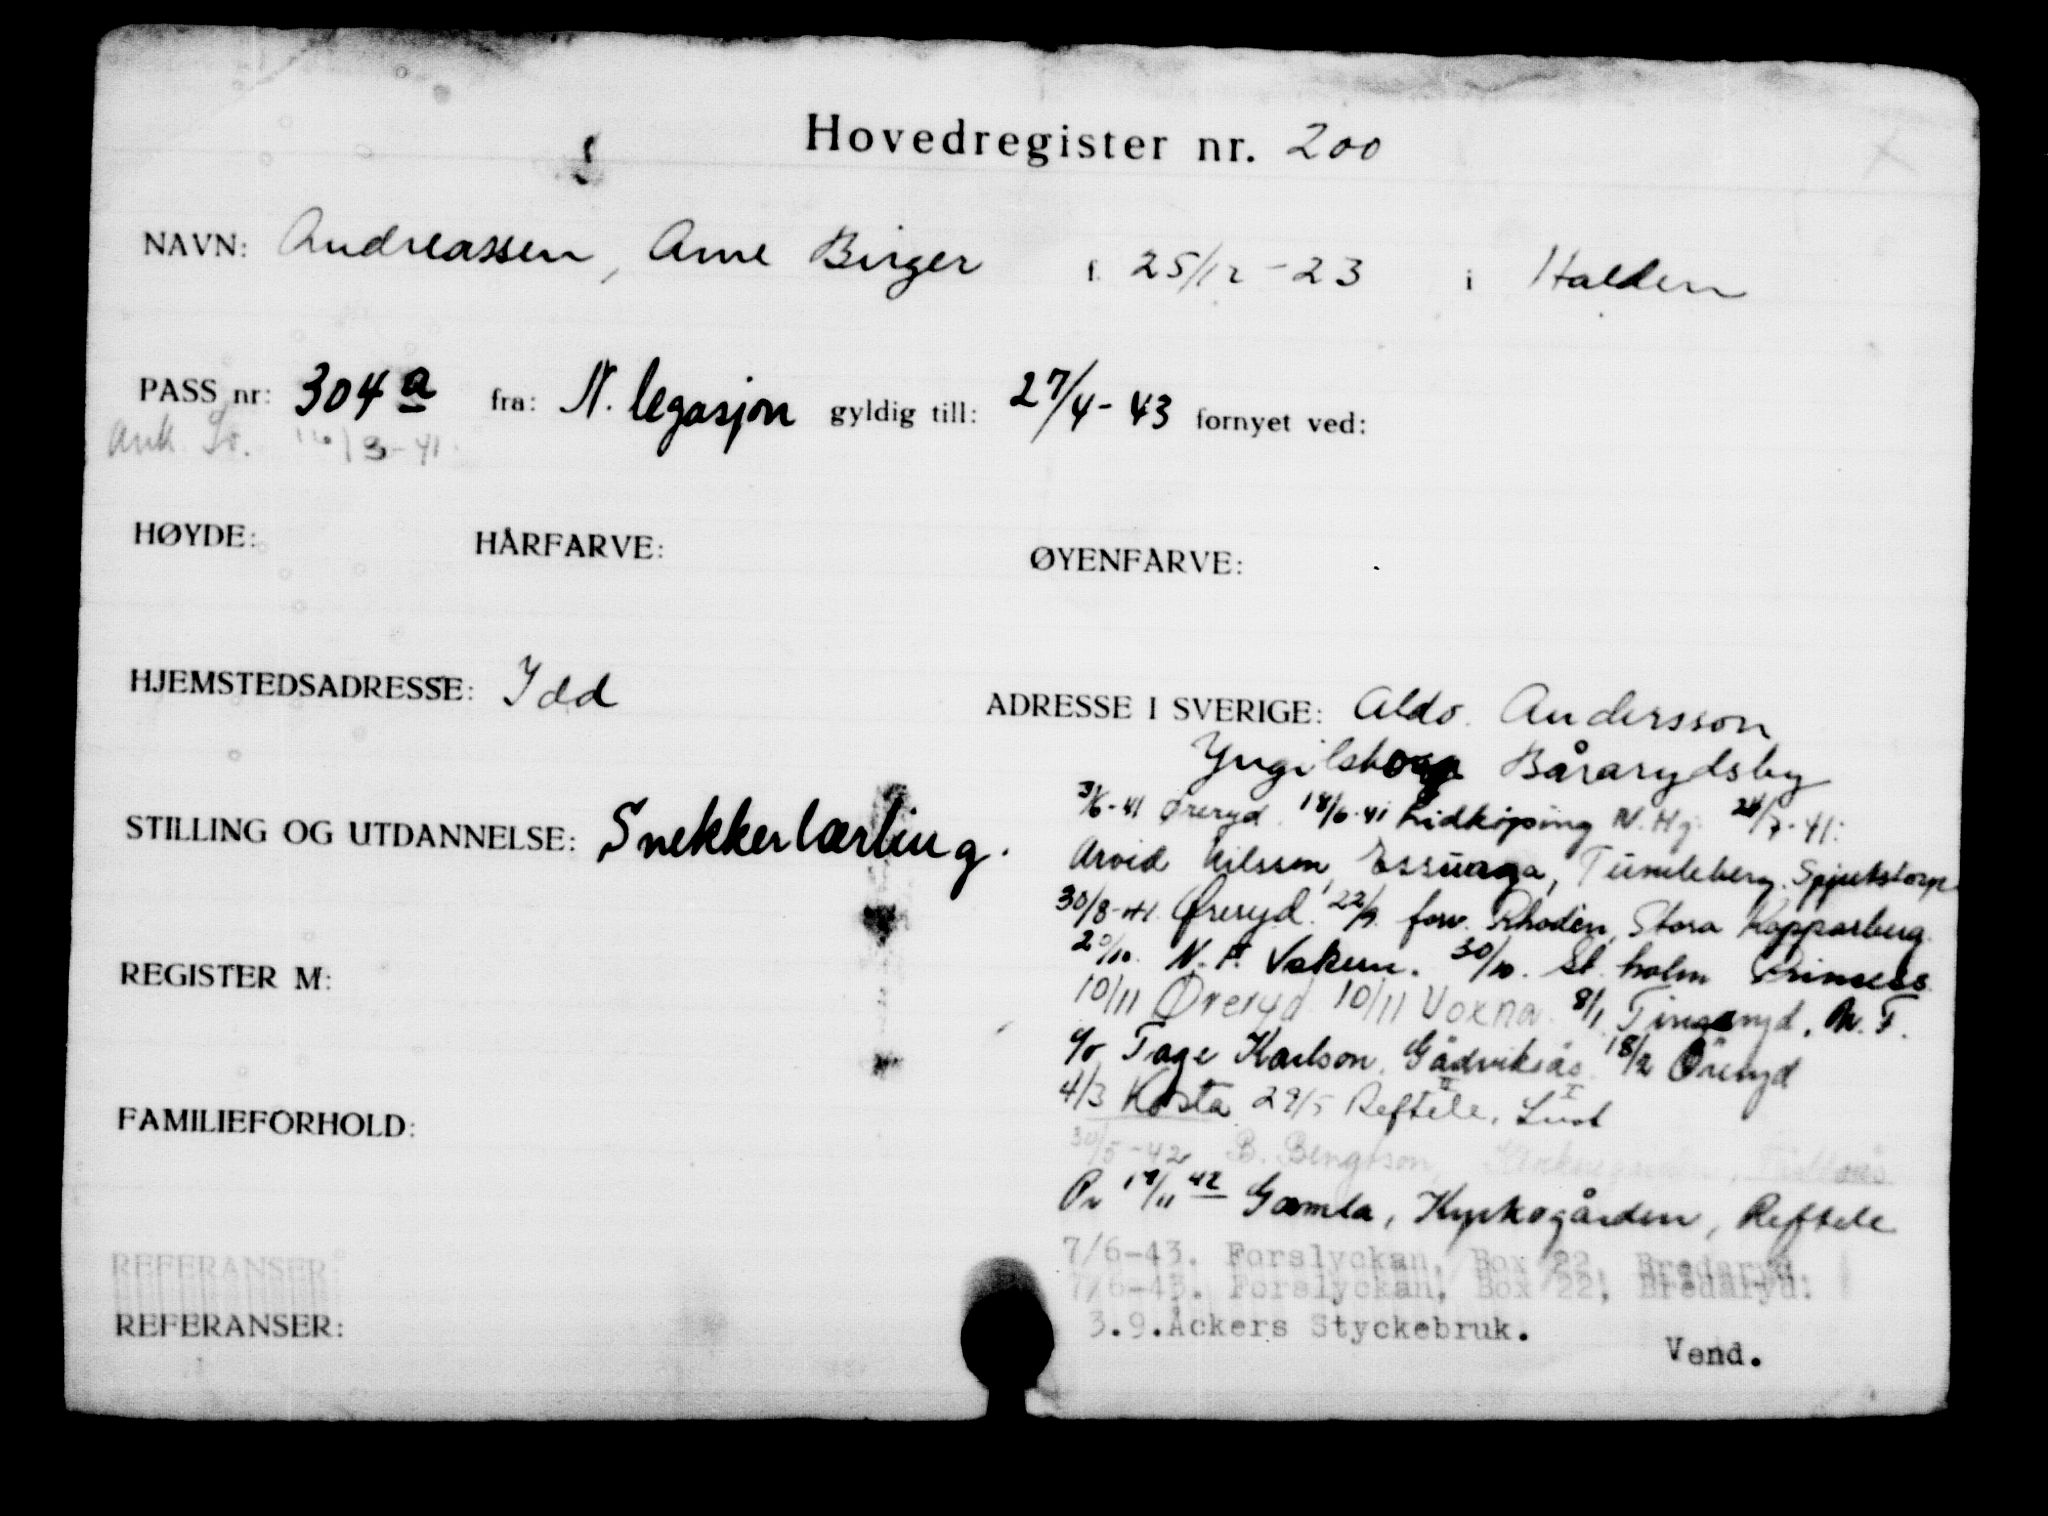 Hovedregister nr. 200
NAVN: Andreassen, Arne Birger f. 25/12-23 i Halden
PASS nr: 304a fra: N. legasjon gyldig till: 27/4-43 fornyet ved:
Ank. Sv. /3-41.
HØYDE: HÅRFARVE: ØYENFARVE:
HJEMSTEDSADRESSE: Idd
ADRESSE I SVERIGE: Aldo. Andersson
Bårarydsby
STILLING OG UTDANNELSE: Snekkerlærling.
3/6-41 Øreryd. 18/6-41 Lidköping N.Hj. 24/7-41:
Arvid Nilsson, Essunga, Tumleberg. Spjutstorp
30/8-41. Øreryd. 22/9. forv. Rhodin, Stora Kopparberg.
20/10. N.F. Voxna. 30/10. St.holm Prinsess
REGISTER M:
10/11 Øreryd 10/11 Voxna. 8/1 Tingsryd. N.F.
c/o Tage Karlson, Gådviksås 18/2 Öreryd
4/3 Kosta 29/5 Reftele, Lust
FAMILIEFORHOLD:
30/5-42 B. Bengtson,
Pr 17/11 42 Gamla, Kyrkogården, Reftele
REFERANSER
7/6-43. Forslyckan, Box 22, Bredaryd.
7/6-43. Forslyckan, Box 22, Bredaryd.
REFERANSER:
3.9.Åckers Styckebruk.
Vend.